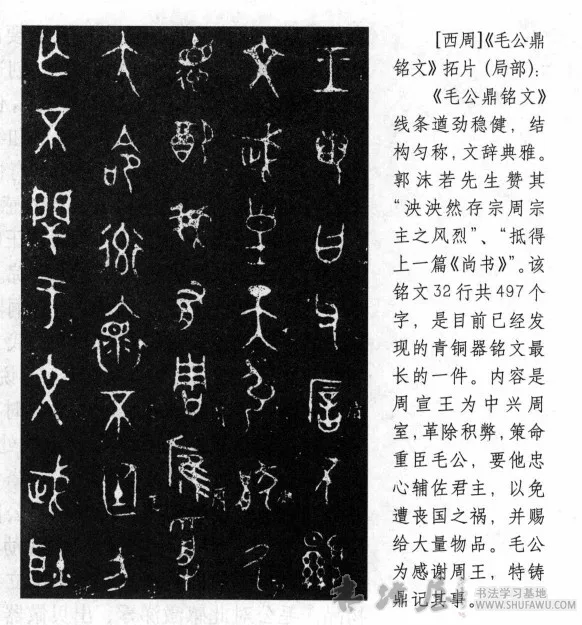 王若曰父㕌不顯
文武皇天引猒氒
德配我有周雁受
大命率褱不廷方
亡不閈于文武耿
[西周]《毛公鼎
铭文》拓片(局部):
《毛公鼎铭文》
线条道劲稳健，结
构匀称，文辞典雅。
郭沫若先生赞其
“泱泱然存宗周宗
主之风烈”、“抵得
上一篇《尚书》”。该
铭文32行共497个
字，是目前已经发
现的青铜器铭文最
长的一件。内容是
周宣王为中兴周
室，革除积弊，策命
重臣毛公，要他忠
心辅佐君主，以免
遭丧国之祸，并赐
给大量物品。毛公
为感谢周王，特铸
鼎记其事。
书法学习基地
WWW.SHUFAWU.COM